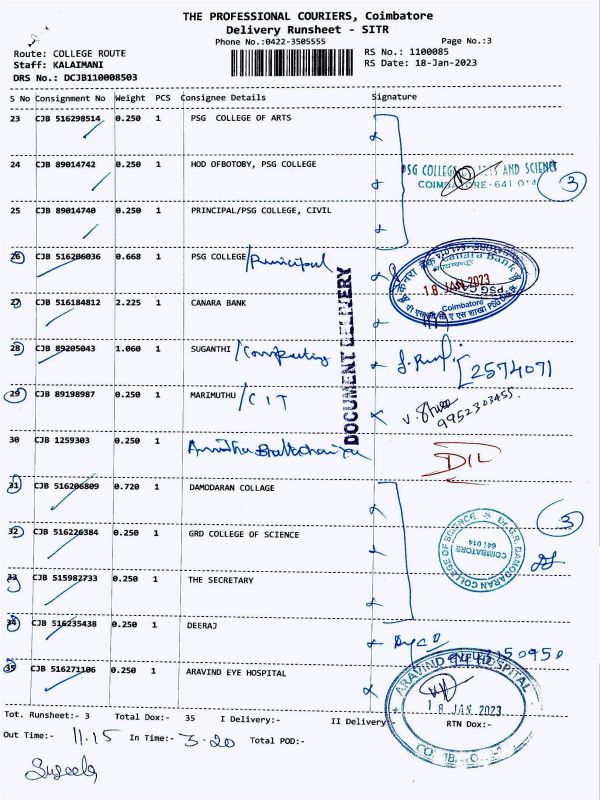 THE PROFESSIONAL COURIERS, Coimbatore
Delivery Runsheet - SITR
Phone No.:0422-3505555 Page No.:3
Route: COLLEGE ROUTE RS No.: 1100085
Staff: KALAIMANI RS Date: 18-Jan-2023
DRS No.: DCJB110008503
S No Consignment No Weight PCS Consignee Details Signature
23 CJB 516298514 0.250 1 PSG COLLEGE OF ARTS
24 CJB 89014742 0.250 1 HOD OFBOTOBY, PSG COLLEGE
PSG COLLEGE OF ARTS AND SCIENCE
COIMBATORE-641 014
3
25 CJB 89014740 0.250 1 PRINCIPAL/PSG COLLEGE, CIVIL
26 CJB 516206036 0.668 1 PSG COLLEGE
Canara Bank
18 JAN 2023
Coimbatore
27 CJB 516184812 2.225 1 CANARA BANK
DOCUMENT DELIVERY
28 CJB 89205043 1.060 1 SUGANTHI /Computing 2574071
29 CJB 89198987 0.250 1 MARIMUTHU /CIT 9952303455
30 CJB 1259303 0.250 1 DIL
31 CJB 516206809 0.720 1 DAMODARAN COLLAGE
3
32 CJB 516226384 0.250 1 GRD COLLEGE OF SCIENCE
Dr. G.R. DAMODARAN COLLEGE OF SCIENCE
COIMBATORE
641 014
33 CJB 515982733 0.250 1 THE SECRETARY
34 CJB 516235438 0.250 1 DEERAJ
35 CJB 516271106 0.250 1 ARAVIND EYE HOSPITAL
ARAVIND EYE HOSPITAL
18 JAN 2023
Tot. Runsheet:- 3 Total Dox:- 35 I Delivery:- II Delivery:- RTN Dox:-
Out Time:- 11.15 In Time:- 3.20 Total POD:-